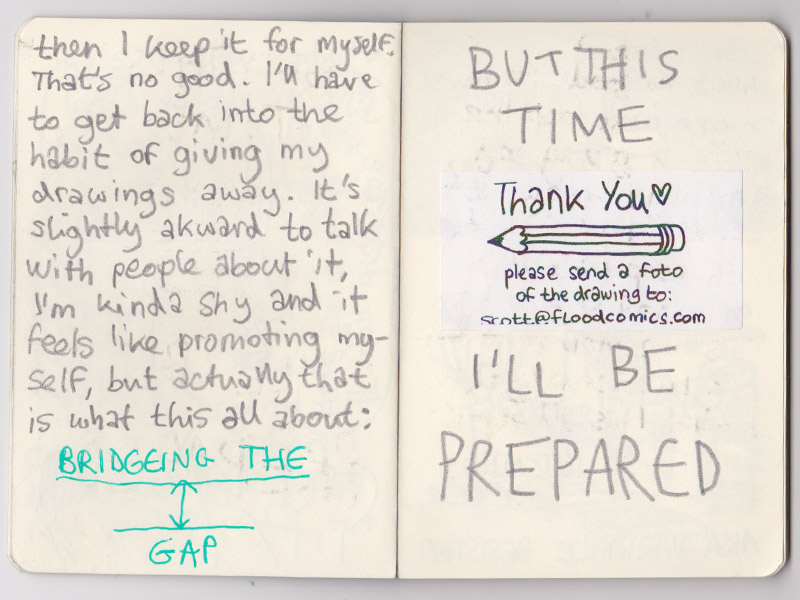 then I keep it for myself.
That's no good. I'll have
to get back into the
habit of giving my
drawings away. It's
slightly akward to talk
with people about it,
I'm kinda shy and it
feels like promoting my-
self, but actually that
is what this all about:
BRIDGEING THE
GAP
BUT THIS
TIME
Thank You♡
please send a foto
of the drawing to:
scott@floodcomics.com
I'LL BE
PREPARED